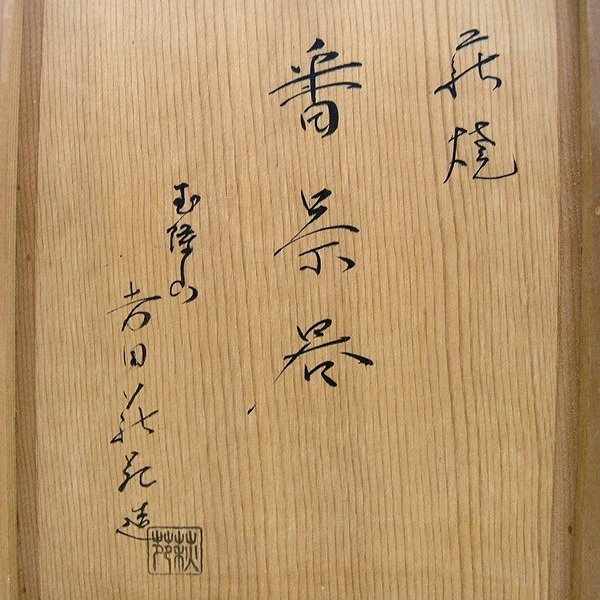 萩焼
番茶器
玉隆山
吉田萩苑造
萩苑